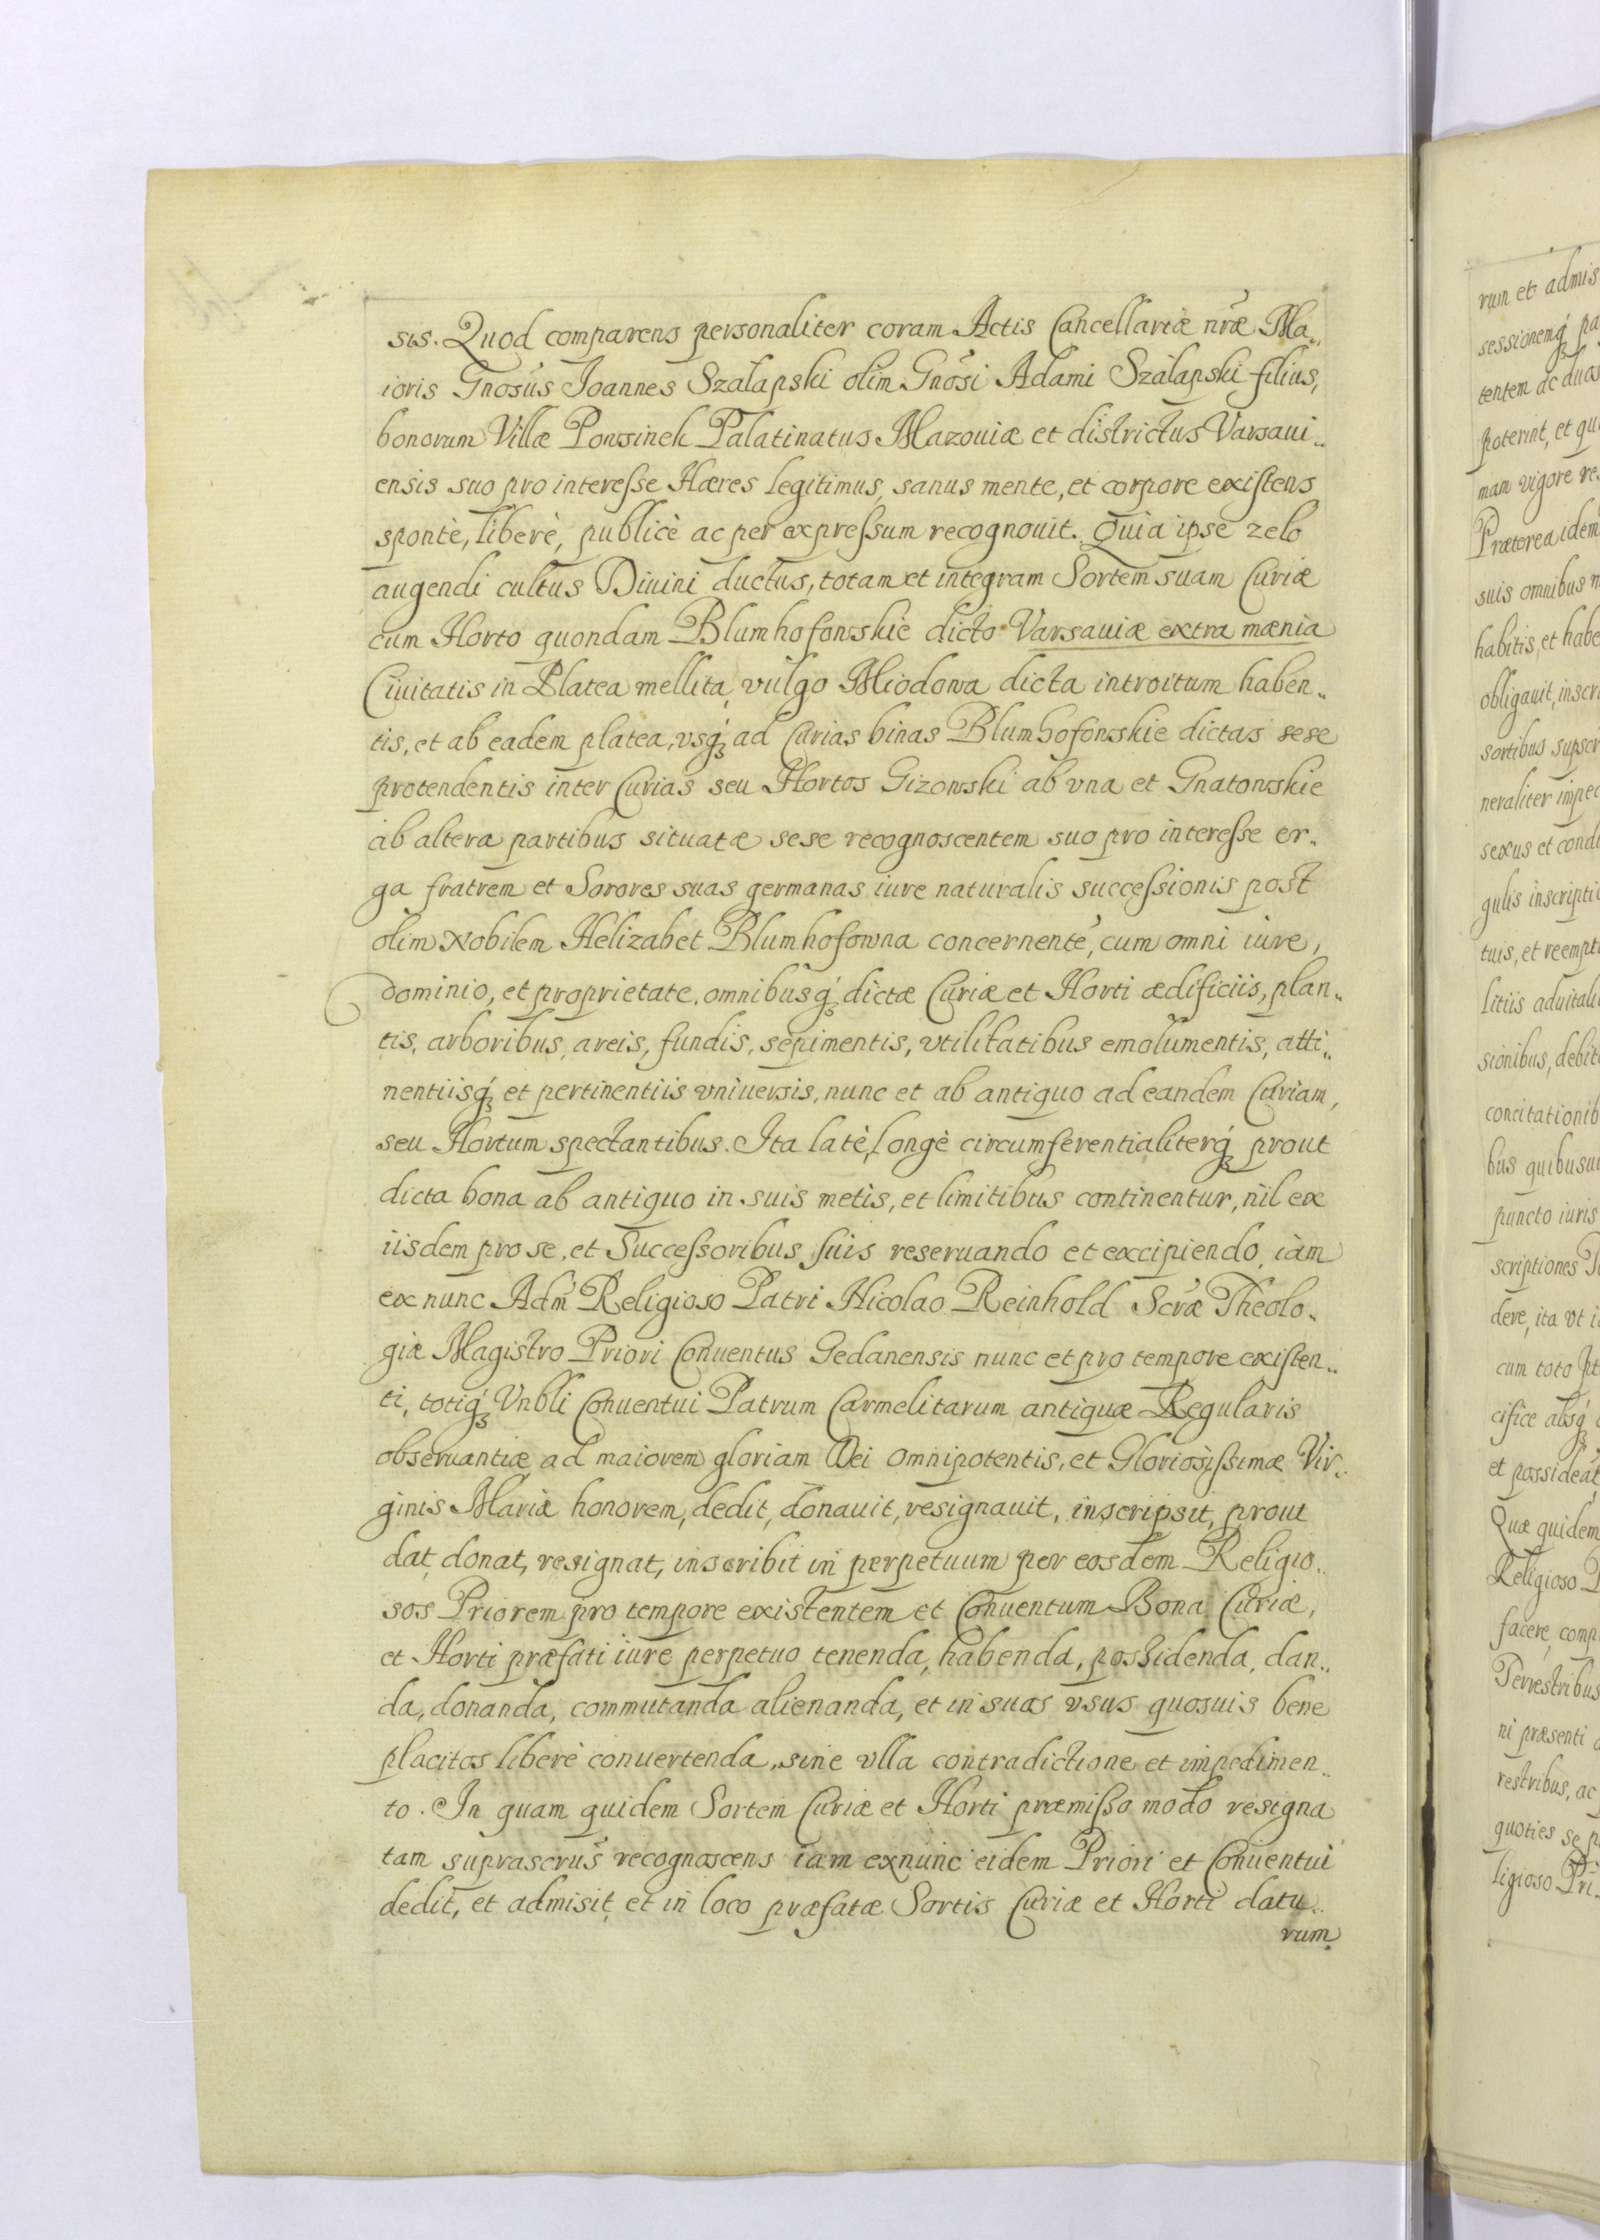 sis. Quod comparens personaliter coram Actis Cancellariæ nr̃æ Ma..
ioris Gnosus Joannes Szalapski olim Gnosi Adami Szalapski filius,
bonorum Villæ Powsinek Palatinatus Mazouiæ et districtus Varsaui..
ensis suo pro interesse Hæres legitimus, sanus mente, et corpore existens
spontè, liberè, publicè ac per expressum recognouit. Quia ipse zelo
augendi cultus Diuini ductus, totam et integram Sortem suam Curiæ
cum Horto quondam Blumhofowskie dicto Varsauiæ extra mænia
Ciuitatis in Platea mellita, vulgo Miodowa dicta introitum haben..
tis, et ab eadem platea, vsq́ꝫ ad Curias binas Blumhofowskie dictas sese
protendentis inter Curias seu Hortos Gizowski ab vna et Gnatowskie
ab altera partibus situatæ sese recognoscentem suo pro interesse er.
ga fratrem et Sorores suas germanas iure naturalis successionis post
olim Nobilem Helizabet Blumhofowna concernente, cum omni iure,
dominio, et proprietate, omnibusq́ꝫ dictæ Curiæ et Horti ædificiis, plan..
tis, arboribus, areis, fundis, sepimentis, vtilitatibus emolumentis, atti..
nentiisq́ꝫ et pertinentiis vniuersis, nunc et ab antiquo ad eandem Curiam,
seu Hortum spectantibus. Ita latè, longè circumferentialiterq́ꝫ prout
dicta bona ab antiquo in suis metis, et limitibus continentur, nil ex
iisdem pro se, et Successoribus suis reseruando et excipiendo, iàm
ex nunc Adm̃ Religioso Patri Nicolao Reinhold Scr̃æ Theolo.
giæ Magistro Priori Conuentus Gedanensis nunc et pro tempore existen..
ti, totiq́ꝫ Vnbli Conuentui Patrum Carmelitarum antiquæ Regularis
obseruantiæ ad maiorem gloriam Dei omnipotentis, et Gloriosissimæ Vir..
ginis Mariæ honorem, dedit, donauit, resignauit, inscripsit, prout
dat, donat, resignat, inscribit in perpetuum per eosdem Religio..
sos Priorem pro tempore existentem et Conuentum Bona Curiæ,
et Horti præfati iure perpetuo tenenda, habenda, possidenda, dan..
da, donanda, commutanda alienanda, et in suos vsus quosuis bene
placitos liberè conuertenda, sine vlla contradictione et impedimen..
to. In quam quidem Sortem Curiæ et Horti præmisso modo resigna
tam suprascrus recognoscens iam exnunc eidem Priori et Conuentui
dedit, et admisit, et in loco præfatæ Sortis Curiæ et Horti datu..
rum
rum et admis
sessionemq́ꝫ pa
tentem de duas
poterint, et qu
mam vigore re
Præterea idem
suis omnibus
habitis, et habe
obligauit, inscr
sortibus supscr
neraliter impe
sexus et condi
gulis inscripti
tuis, et reempt
litiis aduitali
sionibus, debit
concitationib
bus quibusui
puncto iuris
scriptiones
dere, ita vt i
cum toto
cifice absq́ꝫ
et possideat
Quæ quidem
Religioso
facere, comp
Terrestribus
ni præsenti
restribus, ac
quoties se p
ligioso Pri